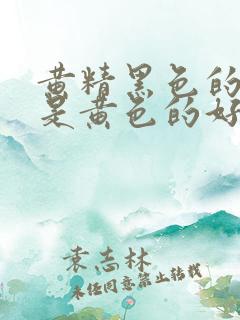 黄精黑色的
是黄色的好
袁志林
未经同意禁止转载